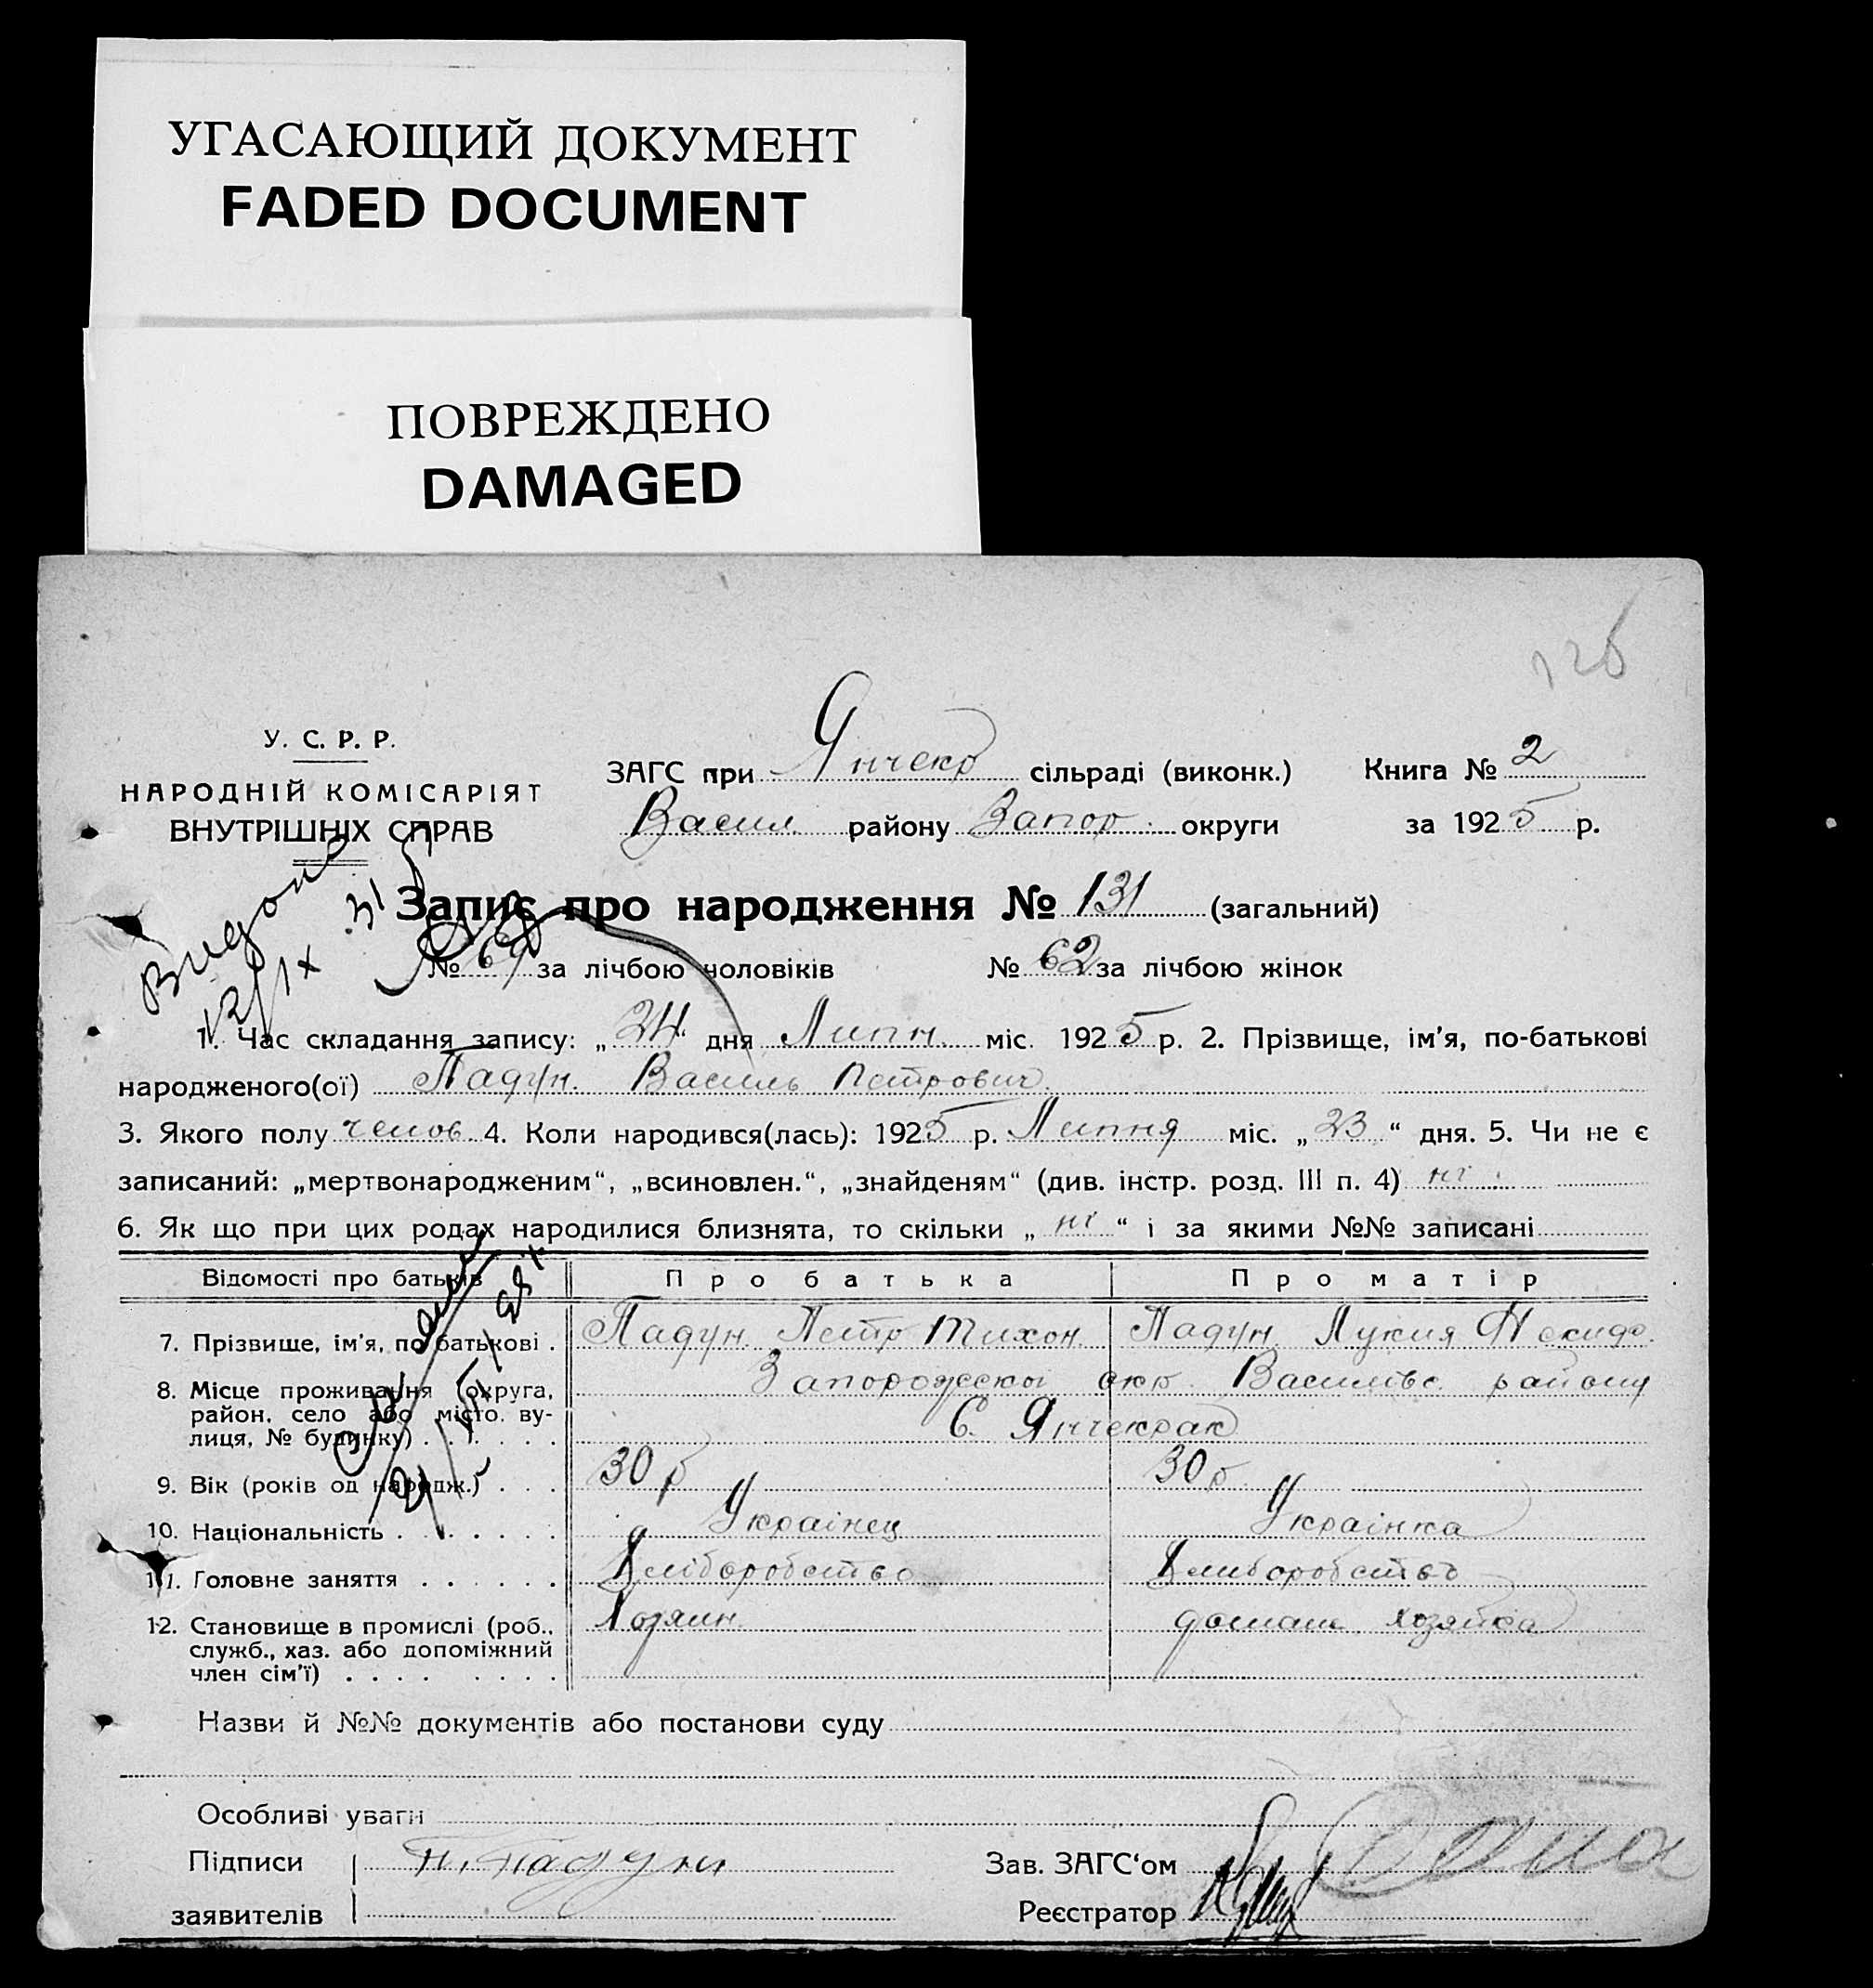 УГАСАЮЩИЙ ДОКУМЕНТ
FADED DOCUMENT
ПОВРЕЖДЕНО
DAMAGED
126
У. С. Р. Р.
НАРОДНІЙ КОМІСАРІЯТ
ВНУТРІШНІХ СПРАВ
ЗАГС при Янчекр сільраді (виконк.) Книга № 2
Васил. району Запор. округи за 1925 р.
Запис про народження № 131 (загальний)
№ 69 за лічбою чоловіків № 62 за лічбою жінок
1. Час складання запису: „24“ дня Липн. міс. 1925 р. 2. Прізвище, ім'я, по-батькові
народженого(ої) Падун. Василь Петрович.
3. Якого полу челов. 4. Коли народився(лась): 1925 р. Липня міс. „23“ дня. 5. Чи не є
записаний: „мертвонародженим“, „всиновлен.“, „знайденям“ (див. інстр. розд. III п. 4) ні
6. Як що при цих родах народилися близнята, то скільки „ні“ і за якими №№ записані
Відомості про батьків Про батька Про матір
7. Прізвище, ім'я, по батькові . Падун. Петр Тихон. Падун. Лукия
8. Місце проживання (округа, Запорожской окр. Василівс. району
район, село або місто, ву- С. Янчекрак
лиця, № будинку) . . . . . .
9. Вік (років од народж.) . . . 30 р 30 р.
10. Національність . . . . . . . Украінец Украінка
11. Головне заняття . . . . . . Хліборобство Хлиборобство
12. Становище в промислі (роб., Хозяин. домаш. хозяйка
служб., хаз. або допоміжний
член сім'ї) . . . . . . . .
Назви й №№ документів або постанови суду
Особливі уваги
Підписи П. Падун Зав. ЗАГС‘ом
заявителів Реєстратор